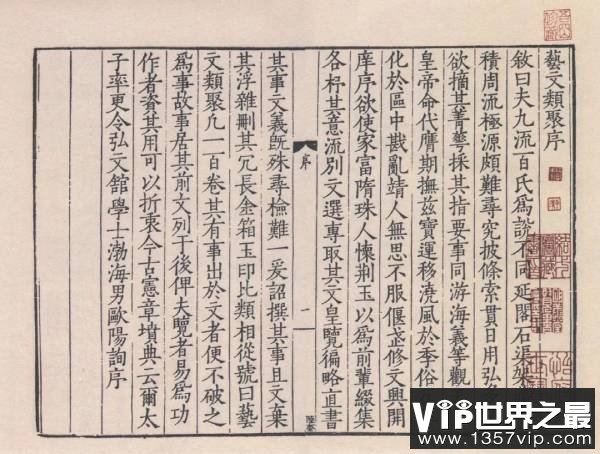 藝文類聚序
敘曰夫九流百氏爲說不同延閣石渠架
積周流極源頗難尋究披條索貫日用弘
欲摘其菁華採其指要事同游海義等觀
皇帝命代膺期撫茲寶運移澆風於季俗
化於區中戡亂靖人無思不服偃武修文興開
庠序欲使家富隋珠人懷荆玉以爲前輩綴集
各杼其意流別文選專取其文皇覽徧略直書
序
一
其事文義既殊尋檢難一爰詔撰其事且文棄
其浮雜刪其冗長金箱玉印比類相從號曰藝
文類聚凡一百卷其有事出於文者便不破之
爲事故事居其前文列于後俾夫覽者易爲功
作者資其用可以折衷今古憲章墳典云爾太
子率更令弘文館學士渤海男歐陽詢序
VIP世界之最
www.1357vip.com